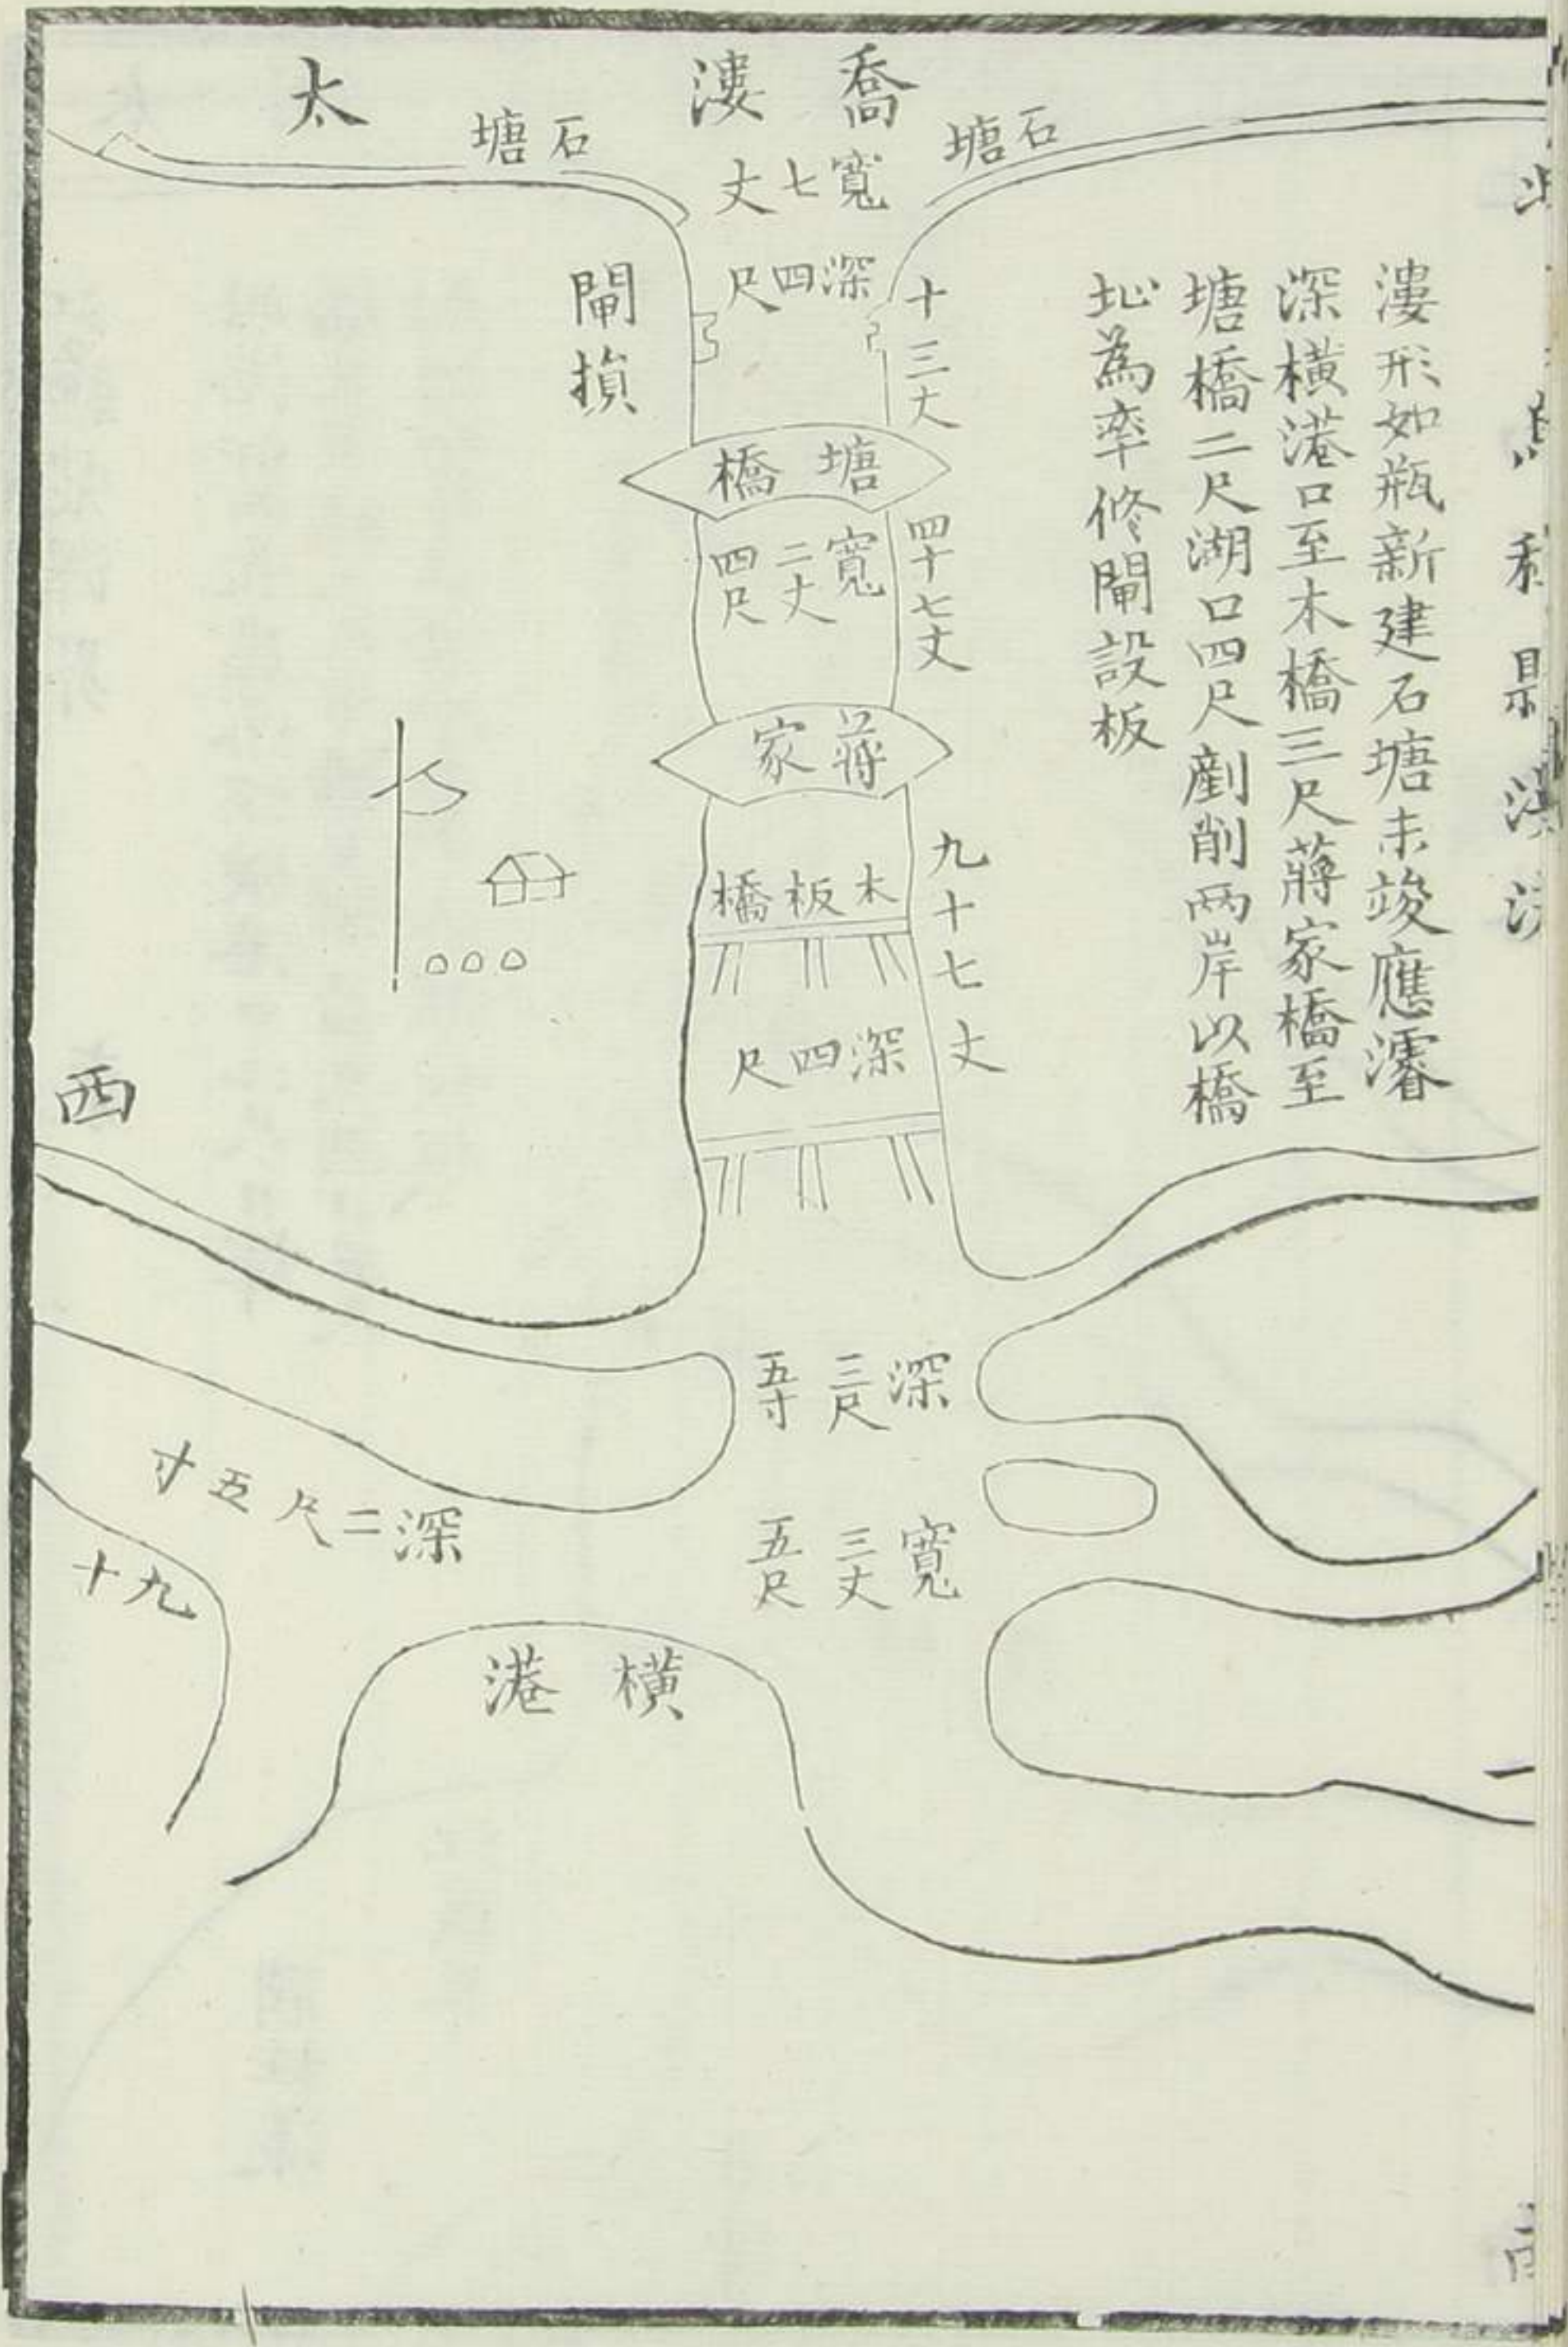 漊形如瓶新建石塘未竣應濬
深橫港口至木橋三尺蔣家橋至
塘橋二尺湖口四尺剷削兩岸以橋
址為率修閘設板
喬漊
太
石塘
石塘
寬七丈
深四尺
十三丈
閘損
塘橋
寬二丈四尺
四十七丈
蔣家
木板橋
九十七丈
深四尺
西
深三尺五寸
深二尺五寸
寬三丈五尺
九十
橫港